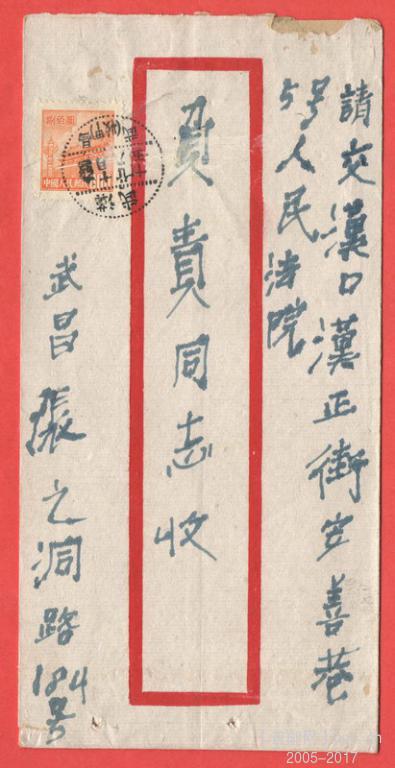 請交漢口漢正街安善巷
5号人民法院
負責同志收
武昌張之洞路184号
中國人民郵政
武漢
2005-2017